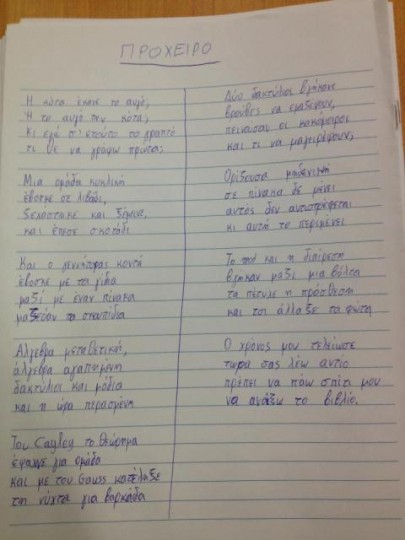 ΠΡΟΧΕΙΡΟ
Η κότα έκανε το αυγό,
Ή το αυγό την κότα;
Κι εγώ σ' ετούτο το γραπτό
τι θε να γράψω πρώτα;
Μια ομάδα κυκλική
έβοσκε σε λιβάδι,
ξεχάστηκε και ξέμεινε
και έπεσε σκοτάδι
Και ο γεννήτορας κοντά
έβοσκε με τα γίδια
μαζί με έναν πίνακα
μαζεύαν τα σκουπίδια
Άλγεβρα μεταθετική,
άλγεβρα αγαπημένη
δακτύλιοι και μόδια
και η ώρα περασμένη
Του Cayley το θεώρημα
έψαχνε για ομάδα
και με τον Gauss κατέληξε
τη νύχτα για βαρκάδα
Δύο δακτύλιοι βγήκανε
βρούβες να μαζέψουν,
πείνασαν οι κακόμοιροι
και τι να μαγειρέψουν;
Ορίζουσα μηδενική
σε πίνακα δε μένει
αυτός δεν αντιστρέφεται
κι αυτή το περιμένει
Το mod και η διαίρεση
βγήκαν μαζί μια βόλτα
τα πέτυχε η πρόσθεση
και τσι άλλαξε τα φώτα
Ο χρόνος μου τελείωσε
τώρα σας λέω αντίο
πρέπει να πάω σπίτι μου
να ανοίξω το βιβλίο.